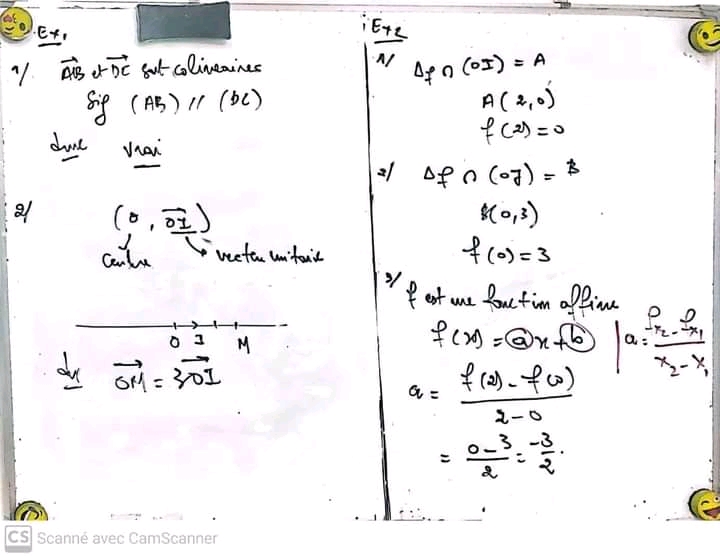 Ex1
1/ AB et DC sont colinéaires
sig (AB) // (DC)
donc vrai
2/ (O, OI)
centre vecteur unitaire
O I M
dc OM = 3OI
Ex2
1/ Δf ∩ (OI) = A
A(2,0)
f(2) = 0
2/ Δf ∩ (OJ) = B
B(0,3)
f(0) = 3
3/ f est une fonction affine
f(x) = ax + b | a = (fx2 - fx1) / (x2 - x1)
a = (f(2) - f(0)) / (2 - 0)
= (0 - 3) / 2 = -3/2.
CS Scanné avec CamScanner